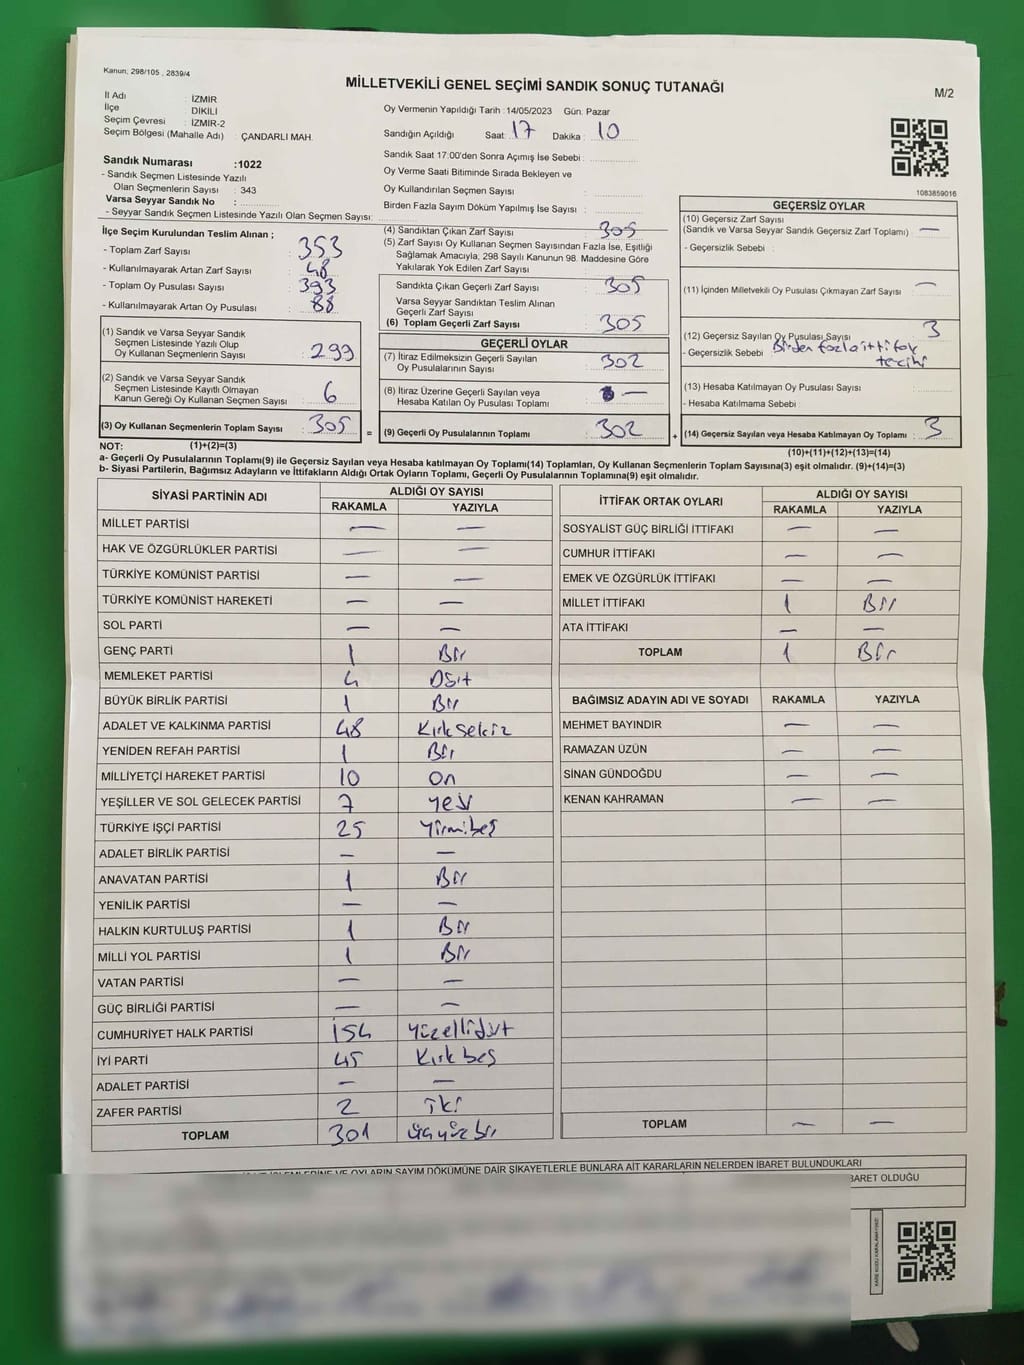 Kanun; 298/105 , 2839/4
MİLLETVEKİLİ GENEL SEÇİMİ SANDIK SONUÇ TUTANAĞI
M/2
İl Adı : İZMİR
İlçe : DİKİLİ
Seçim Çevresi : İZMİR-2
Seçim Bölgesi (Mahalle Adı) : ÇANDARLI MAH.
Oy Vermenin Yapıldığı Tarih :14/05/2023 Gün. Pazar
Sandığın Açıldığı Saat: 17 Dakika : 10
Sandık Saat 17:00'den Sonra Açımış İse Sebebi :
Oy Verme Saati Bitiminde Sırada Bekleyen ve
Oy Kullandırılan Seçmen Sayısı :
Birden Fazla Sayım Döküm Yapılmış İse Sayısı :
Sandık Numarası :1022
- Sandık Seçmen Listesinde Yazılı
Olan Seçmenlerin Sayısı : 343
Varsa Seyyar Sandık No :
- Seyyar Sandık Seçmen Listesinde Yazılı Olan Seçmen Sayısı:
1083859016
İlçe Seçim Kurulundan Teslim Alınan ;
- Toplam Zarf Sayısı : 353
- Kullanılmayarak Artan Zarf Sayısı : 48
- Toplam Oy Pusulası Sayısı : 393
- Kullanılmayarak Artan Oy Pusulası : 88
(1) Sandık ve Varsa Seyyar Sandık
Seçmen Listesinde Yazılı Olup
Oy Kullanan Seçmenlerin Sayısı : 299
(2) Sandık ve Varsa Seyyar Sandık
Seçmen Listesinde Kayıtlı Olmayan
Kanun Gereği Oy Kullanan Seçmen Sayısı : 6
(3) Oy Kullanan Seçmenlerin Toplam Sayısı : 305
(4) Sandıktan Çıkan Zarf Sayısı : 305
(5) Zarf Sayısı Oy Kullanan Seçmen Sayısından Fazla İse, Eşitliği
Sağlamak Amacıyla, 298 Sayılı Kanunun 98. Maddesine Göre
Yakılarak Yok Edilen Zarf Sayısı :
Sandıkta Çıkan Geçerli Zarf Sayısı : 305
Varsa Seyyar Sandıktan Teslim Alınan
Geçerli Zarf Sayısı :
(6) Toplam Geçerli Zarf Sayısı : 305
GEÇERLİ OYLAR
(7) İtiraz Edilmeksizin Geçerli Sayılan
Oy Pusulalarının Sayısı : 302
(8) İtiraz Üzerine Geçerli Sayılan veya
Hesaba Katılan Oy Pusulası Toplamı : —
= (9) Geçerli Oy Pusulalarının Toplamı : 302
GEÇERSİZ OYLAR
(10) Geçersiz Zarf Sayısı
(Sandık ve Varsa Seyyar Sandık Geçersiz Zarf Toplamı) : —
- Geçersizlik Sebebi :
(11) İçinden Milletvekili Oy Pusulası Çıkmayan Zarf Sayısı : —
(12) Geçersiz Sayılan Oy Pusulası Sayısı : 3
- Geçersizlik Sebebi : Birden fazla ittifak
tercihi
(13) Hesaba Katılmayan Oy Pusulası Sayısı :
- Hesaba Katılmama Sebebi :
+ (14) Geçersiz Sayılan veya Hesaba Katılmayan Oy Toplamı : 3
NOT: (1)+(2)=(3)
(10)+(11)+(12)+(13)=(14)
a- Geçerli Oy Pusulalarının Toplamı(9) ile Geçersiz Sayılan veya Hesaba katılmayan Oy Toplamı(14) Toplamları, Oy Kullanan Seçmenlerin Toplam Sayısına(3) eşit olmalıdır. (9)+(14)=(3)
b- Siyasi Partilerin, Bağımsız Adayların ve İttifakların Aldığı Ortak Oyların Toplamı, Geçerli Oy Pusulalarının Toplamına(9) eşit olmalıdır.
SİYASİ PARTİNİN ADI ALDIĞI OY SAYISI
RAKAMLA YAZIYLA
MİLLET PARTİSİ — —
HAK VE ÖZGÜRLÜKLER PARTİSİ — —
TÜRKİYE KOMÜNİST PARTİSİ — —
TÜRKİYE KOMÜNİST HAREKETİ — —
SOL PARTİ — —
GENÇ PARTİ 1 Bir
MEMLEKET PARTİSİ 4 Dört
BÜYÜK BİRLİK PARTİSİ 1 Bir
ADALET VE KALKINMA PARTİSİ 48 Kırksekiz
YENİDEN REFAH PARTİSİ 1 Bir
MİLLİYETÇİ HAREKET PARTİSİ 10 On
YEŞİLLER VE SOL GELECEK PARTİSİ 7 Yedi
TÜRKİYE İŞÇİ PARTİSİ 25 Yirmibeş
ADALET BİRLİK PARTİSİ — —
ANAVATAN PARTİSİ 1 Bir
YENİLİK PARTİSİ — —
HALKIN KURTULUŞ PARTİSİ 1 Bir
MİLLİ YOL PARTİSİ 1 Bir
VATAN PARTİSİ — —
GÜÇ BİRLİĞİ PARTİSİ — —
CUMHURİYET HALK PARTİSİ 154 Yüzellidört
İYİ PARTİ 45 Kırkbeş
ADALET PARTİSİ — —
ZAFER PARTİSİ 2 İki
TOPLAM 301 üçyüzbir
İTTİFAK ORTAK OYLARI ALDIĞI OY SAYISI
RAKAMLA YAZIYLA
SOSYALİST GÜÇ BİRLİĞİ İTTİFAKI — —
CUMHUR İTTİFAKI — —
EMEK VE ÖZGÜRLÜK İTTİFAKI — —
MİLLET İTTİFAKI 1 Bir
ATA İTTİFAKI — —
TOPLAM 1 Bir
BAĞIMSIZ ADAYIN ADI VE SOYADI RAKAMLA YAZIYLA
MEHMET BAYINDIR — —
RAMAZAN ÜZÜN — —
SİNAN GÜNDOĞDU — —
KENAN KAHRAMAN — —
TOPLAM — —
VE OYLARIN SAYIM DÖKÜMÜNE DAİR ŞİKAYETLERLE BUNLARA AİT KARARLARIN NELERDEN İBARET BULUNDUKLARI
BARET OLDUĞU
KARE KODU KARALAMAYINIZ!